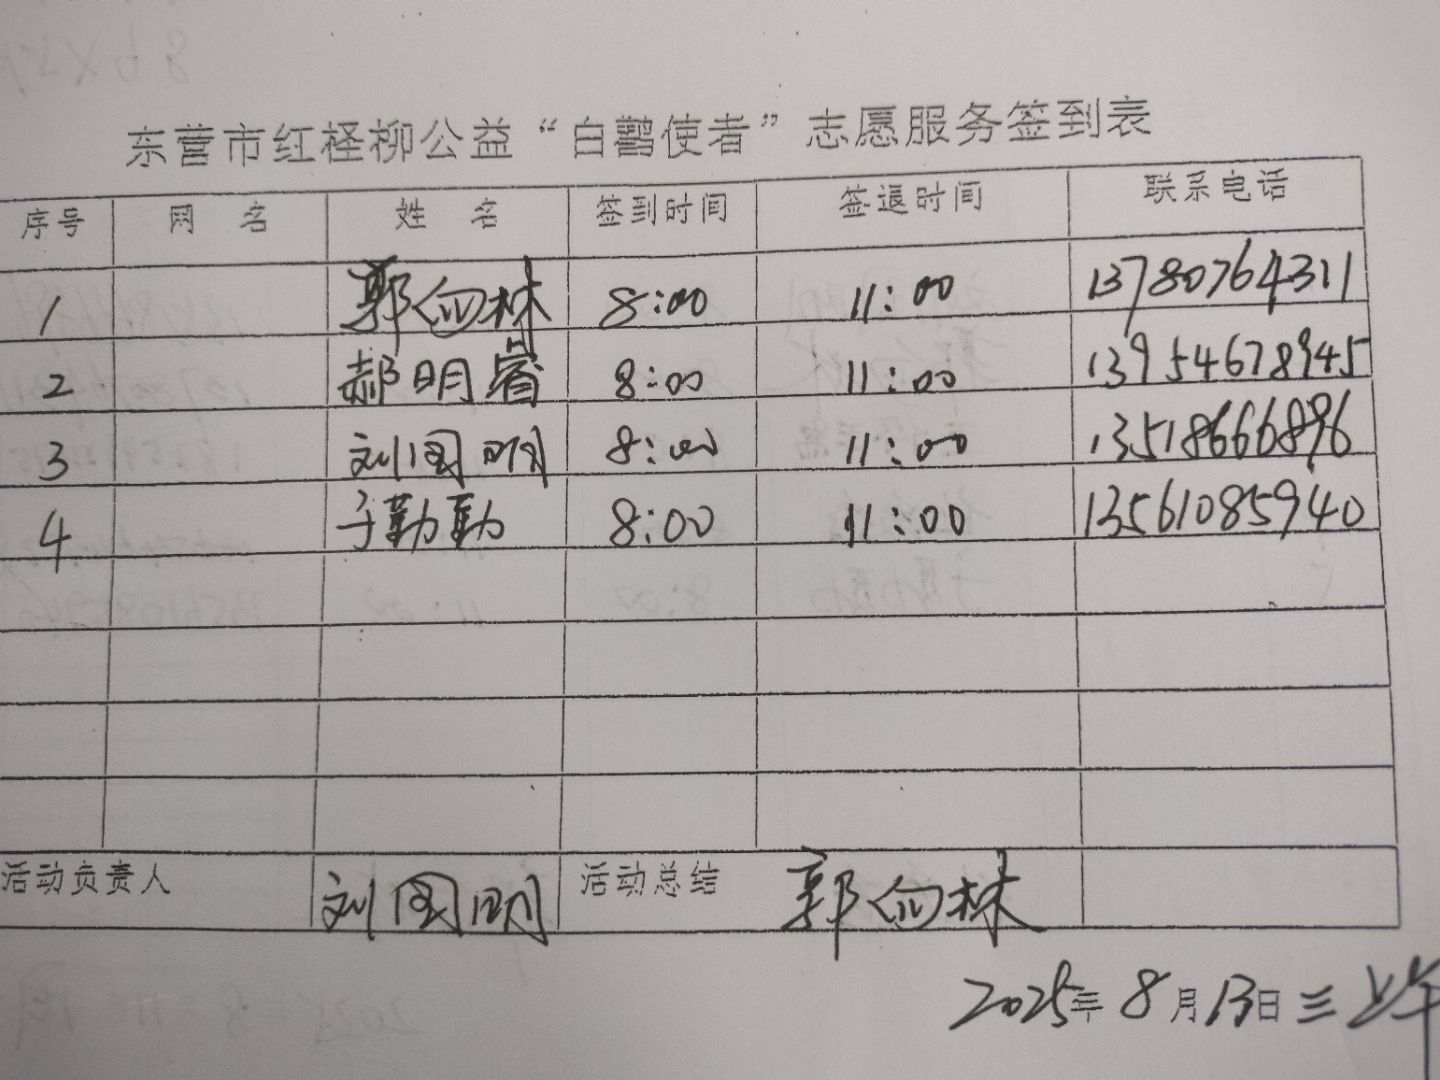 东营市红柽柳公益“白鹳使者”志愿服务签到表
序号 网 名 姓 名 签到时间 签退时间 联系电话
1 郭向林 8:00 11:00 13780764311
2 郝明睿 8:00 11:00 13954678945
3 刘国明 8:00 11:00 13518666896
4 于勤勤 8:00 11:00 13561085940
活动负责人 刘国明 活动总结 郭向林
2025年8月13日 三 上午